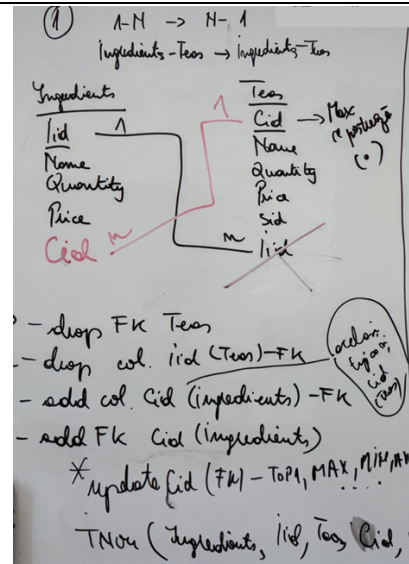 ① 1-N -> N-1
Ingredients-Teas → Ingredients-Teas
Ingredients
Iid 1
Name
Quantity
Price
Cid m
1
Teas
Cid → Max
(•)
Name
Quantity
Price
Sid
m Iid
- drop FK Teas
- drop col. iid (Teas)-FK
- add col. Cid (ingredients)-FK
cid
(Teas)
- add FK Cid (ingredients)
* update Cid (FK) - TOP1, MAX, MIN,
(Ingredients, Iid, Teas, Cid,